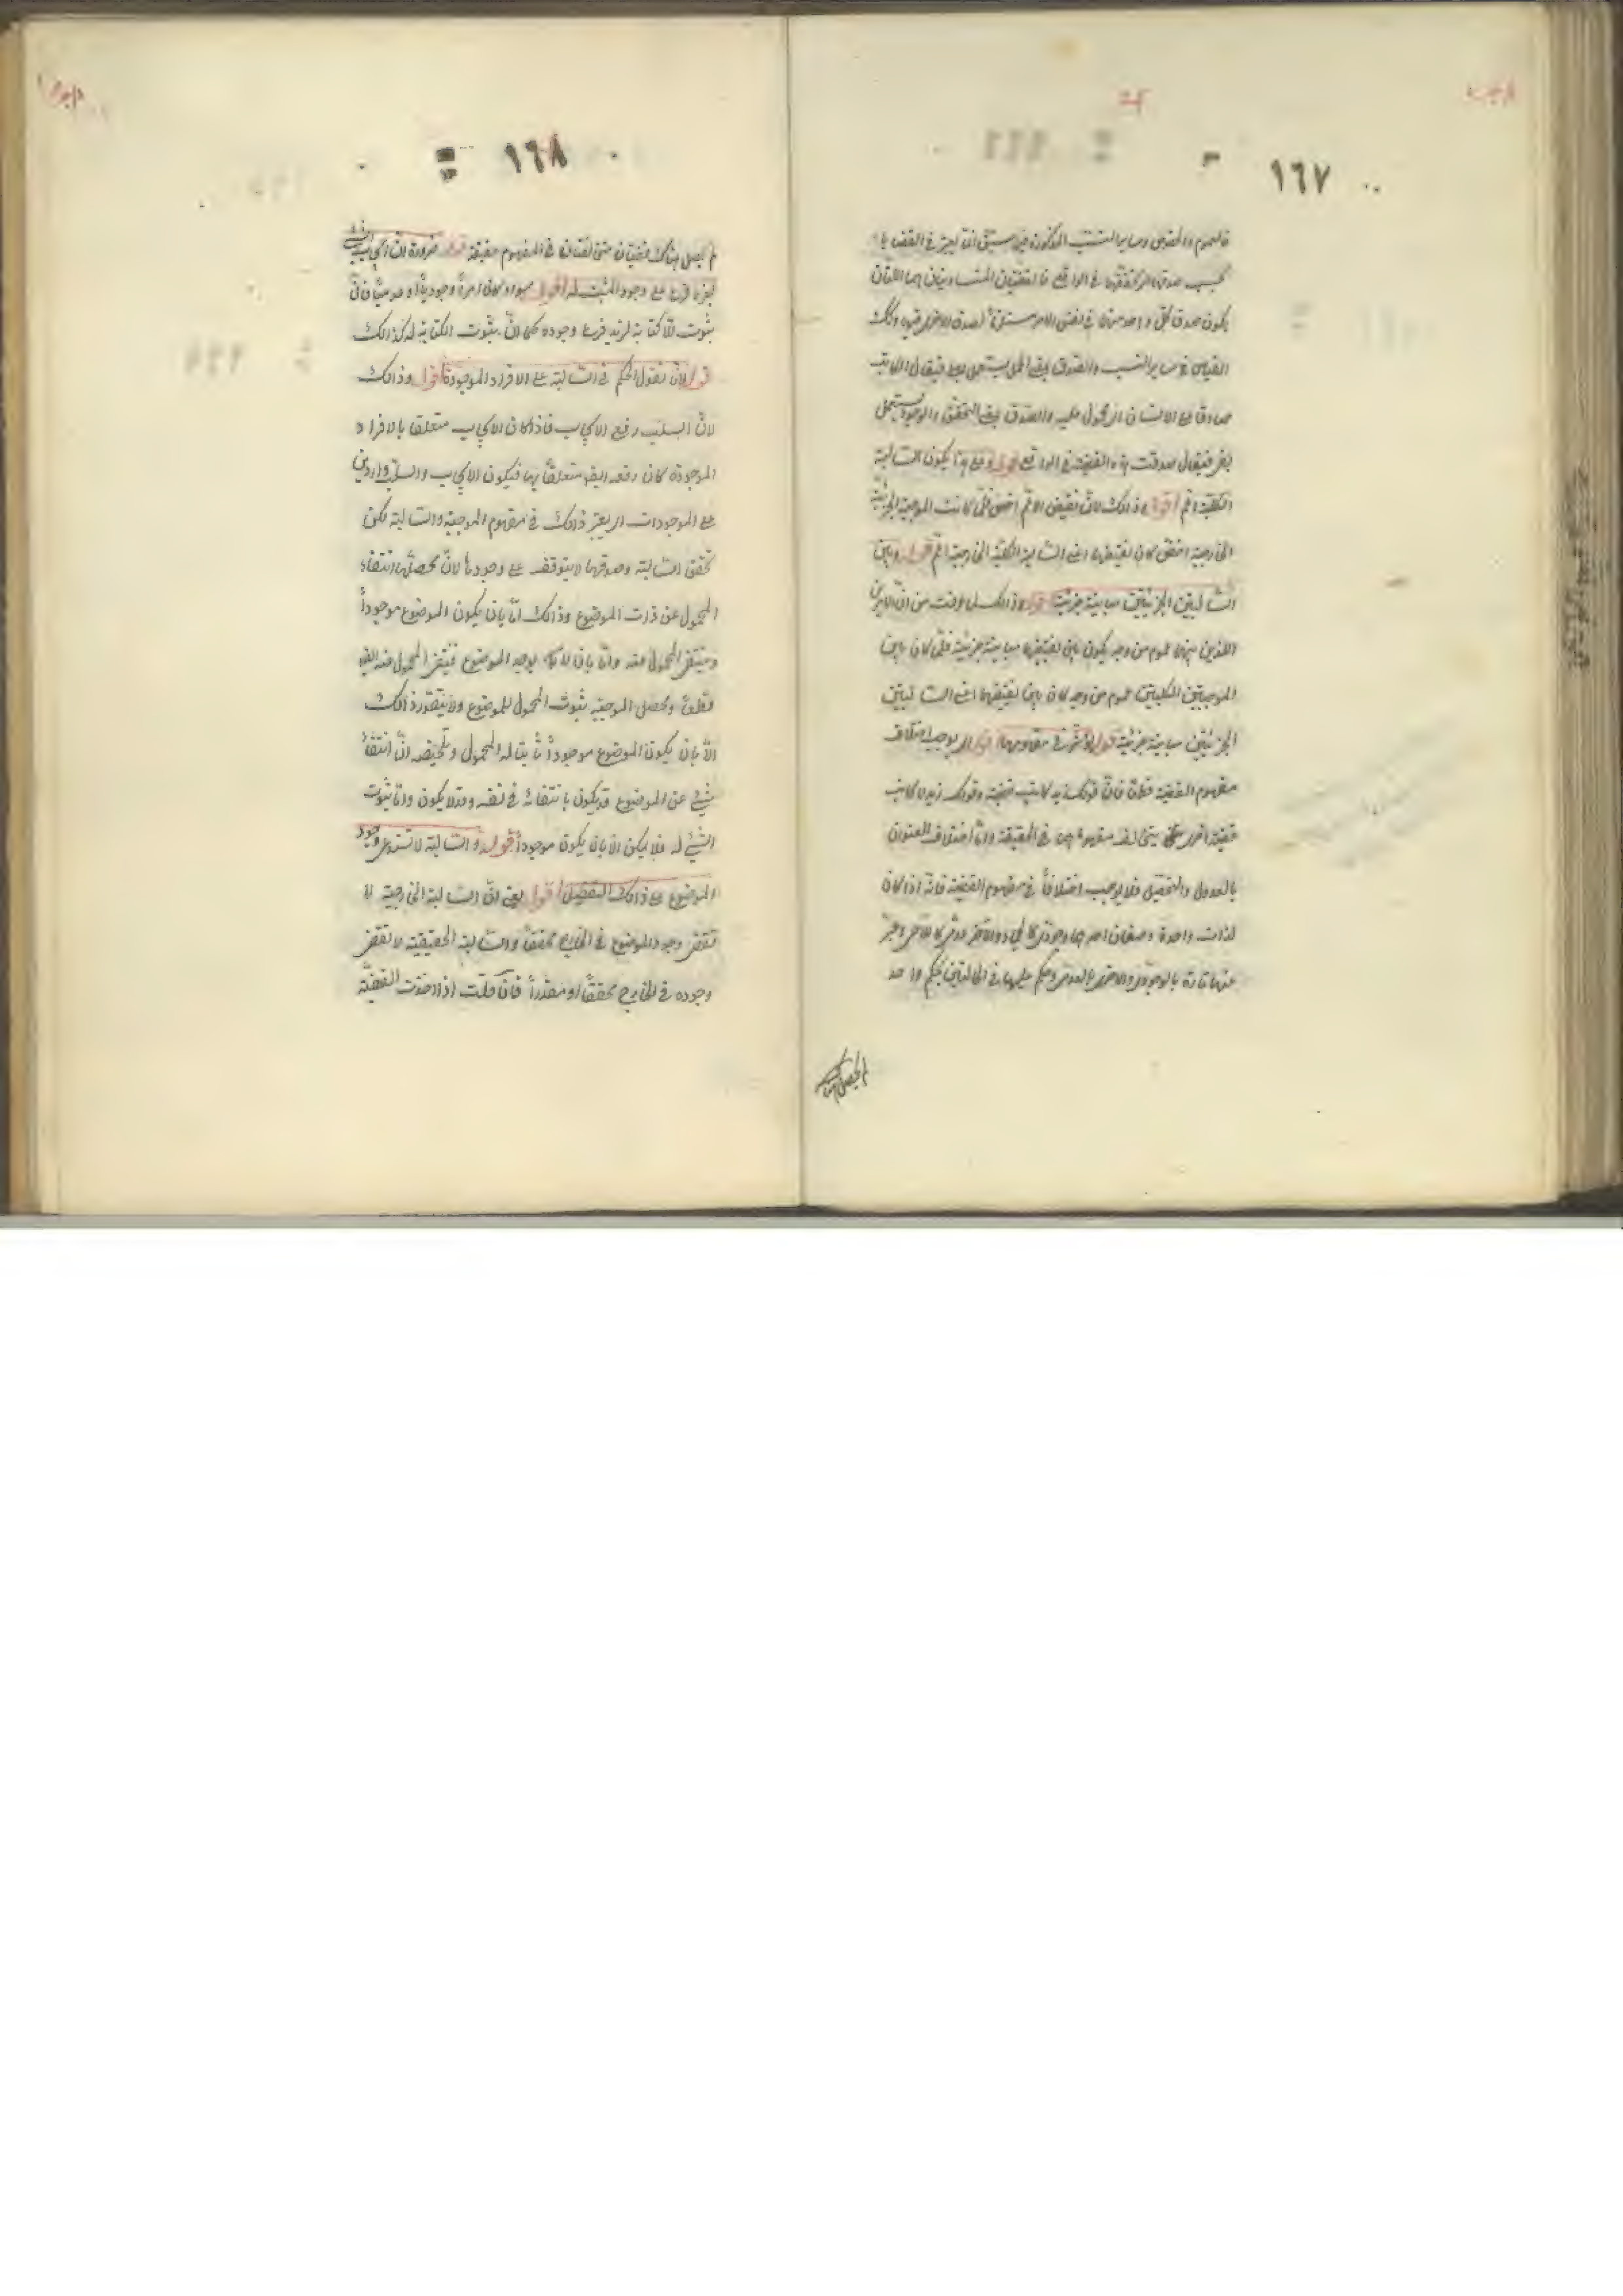 ١٦٧
فالعموم والخصوص وساير النسب المذكورة فيما سبق انما يعتبر في القضايا
بحسب صدقها اى تحققها في الواقع فالقضيتان المتساويتان هما اللتان
يكون صدق كل واحد منهما في نفس الامر مستلزماً لصدق الاخرى فيها وكذلك
القياس في ساير النسب والصدق بمعنى الحمل يستعمل بعلى فيقال الكاتب
صادق على الانسان اى محمول عليه والصدق بمعنى التحقق والوجود يستعمل
بفي فيقال صدقت هذه القضية في الواقع قوله وعلى هذا يكون السالبة
الكلية اعم اقول وذلك لان نقيض الاعم اخص فلما كانت الموجبة الجزئية
الخارجية اخص كان نقيضها اعنى السالبة الكلية الخارجية اعم قوله وبين
السالبتين الجزئيتين مباينة جزئية اقول وذلك لما عرفت من ان الامرين
اللذين بينهما عموم من وجه يكون بين نقيضيهما مباينة جزئية فلما كان بين
الموجبتين الكليتين عموم من وجه كان بين نقيضيهما اعنى السالبتين
الجزئيتين مباينة جزئية قوله في مفهومها اقول يوجب اختلاف
مفهوم القضية قطعاً فان قولك زيد كاتب قضية وقولك زيد لا كاتب
قضية اخرى يخالف مفهوماهما في الحقيقة واما اختلاف العنوان
بالعدول والتحصيل فلا يوجب اختلافاً في مفهوم القضية فانه اذا كان
لذات واحدة وصفان احدهما وجودى كالجماد والاخر عدمى كاللاحى وعبر
عنها تارة بالوجودى والاخرى بالعدمى وحكم عليها في الحالتين بحكم واحد
لم يحصل هناك
١٦٨
لم يحصل هناك قضيتان متخالفتان في المفهوم حقيقة قوله ضرورة ان ايجاب الشئ
لغيره فرع على وجود المثبت له اقول سواء كان امراً وجودياً او عدمياً فان
ثبوت اللاكتابة لزيد فرع وجوده كما ان ثبوت الكتابة له كذلك
قوله لانا نقول الحكم في السالبة على الافراد الموجودة اقول وذلك
لان السلب رفع الايجاب فاذا كان الايجاب متعلقا بالافراد
الموجودة كان رفعه ايضا متعلقاً بها فيكون الايجاب والسلب واردين
على الموجودات اى يعتبر ذلك في مفهوم الموجبة والسالبة لكن
تحقق السالبة وصدقها لا يتوقف على وجودها لان محصلها انتفاء
المحمول عن ذات الموضوع وذلك اما بان يكون الموضوع موجوداً
وينتفى المحمول عنه واما بان لا يوجد الموضوع فينتفى المحمول عنه ايضا
قطعاً ومحصل الموجبة ثبوت المحمول للموضوع ولا يتصور ذلك
الا بان يكون الموضوع موجوداً ثابتا له المحمول وتلخيصه ان انتفاء
شئ عن الموضوع قد يكون بانتفائه في نفسه وقد لا يكون واما ثبوت
الشئ له فلا يمكن الا بان يكون موجوداً قوله والسالبة لا تستدعى وجود
الموضوع على ذلك التفصيل اقول يعنى ان السالبة الخارجية لا
تقتضى وجود الموضوع في الخارج محققاً والسالبة الحقيقية لا تقتضى
وجوده في الخارج محققاً او مقدراً فان قلت اذا اخذت القضية